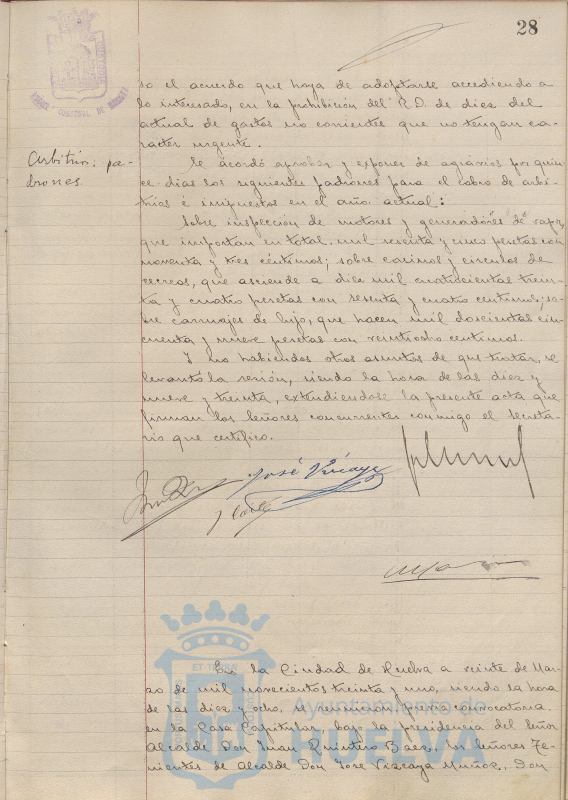 28
so el acuerdo que haya de adoptarse accediendo a
lo interesado, en la prohibición del R.D. de diez del
actual de gastos no corrientes que no tengan ca-
racter urgente.
Arbitrios: pa-
drones.
Se acordó aprobar y exponer de agravios por quin-
ce días los siguientes padrones para el cobro de arbi-
trios é impuestos en el año actual:
Sobre inspección de motores y generadores de vapor,
que importan en total mil sesenta y cinco pesetas con
noventa y tres céntimos; sobre casinos y circulos de
recreos, que asciende a diez mil cuatrocientas trein-
ta y cuatro pesetas con sesenta y cuatro centimos; so-
bre carruajes de lujo, que hacen mil doscientas cin-
cuenta y nueve pesetas con veintiocho centimos.
Y no habiendo otros asuntos de que tratar, se
levantó la sesión, siendo la hora de las diez y
nueve y treinta, extendiendose la presente acta que
firman los Señores concurrentes conmigo el Secreta-
rio que certifico.
José Vizcaya
En la Ciudad de Huelva a veinte de Mar-
zo de mil novecientos treinta y uno, siendo la hora
de las diez y ocho, se reunieron, previa convocatoria
en la Casa Capitular, bajo la presidencia del Señor
Alcalde Don Juan Quintero Baez, los Señores Te-
nientes de Alcalde Don Jose Vizcaya Muñoz, Don
Ayuntamiento de
HUELVA